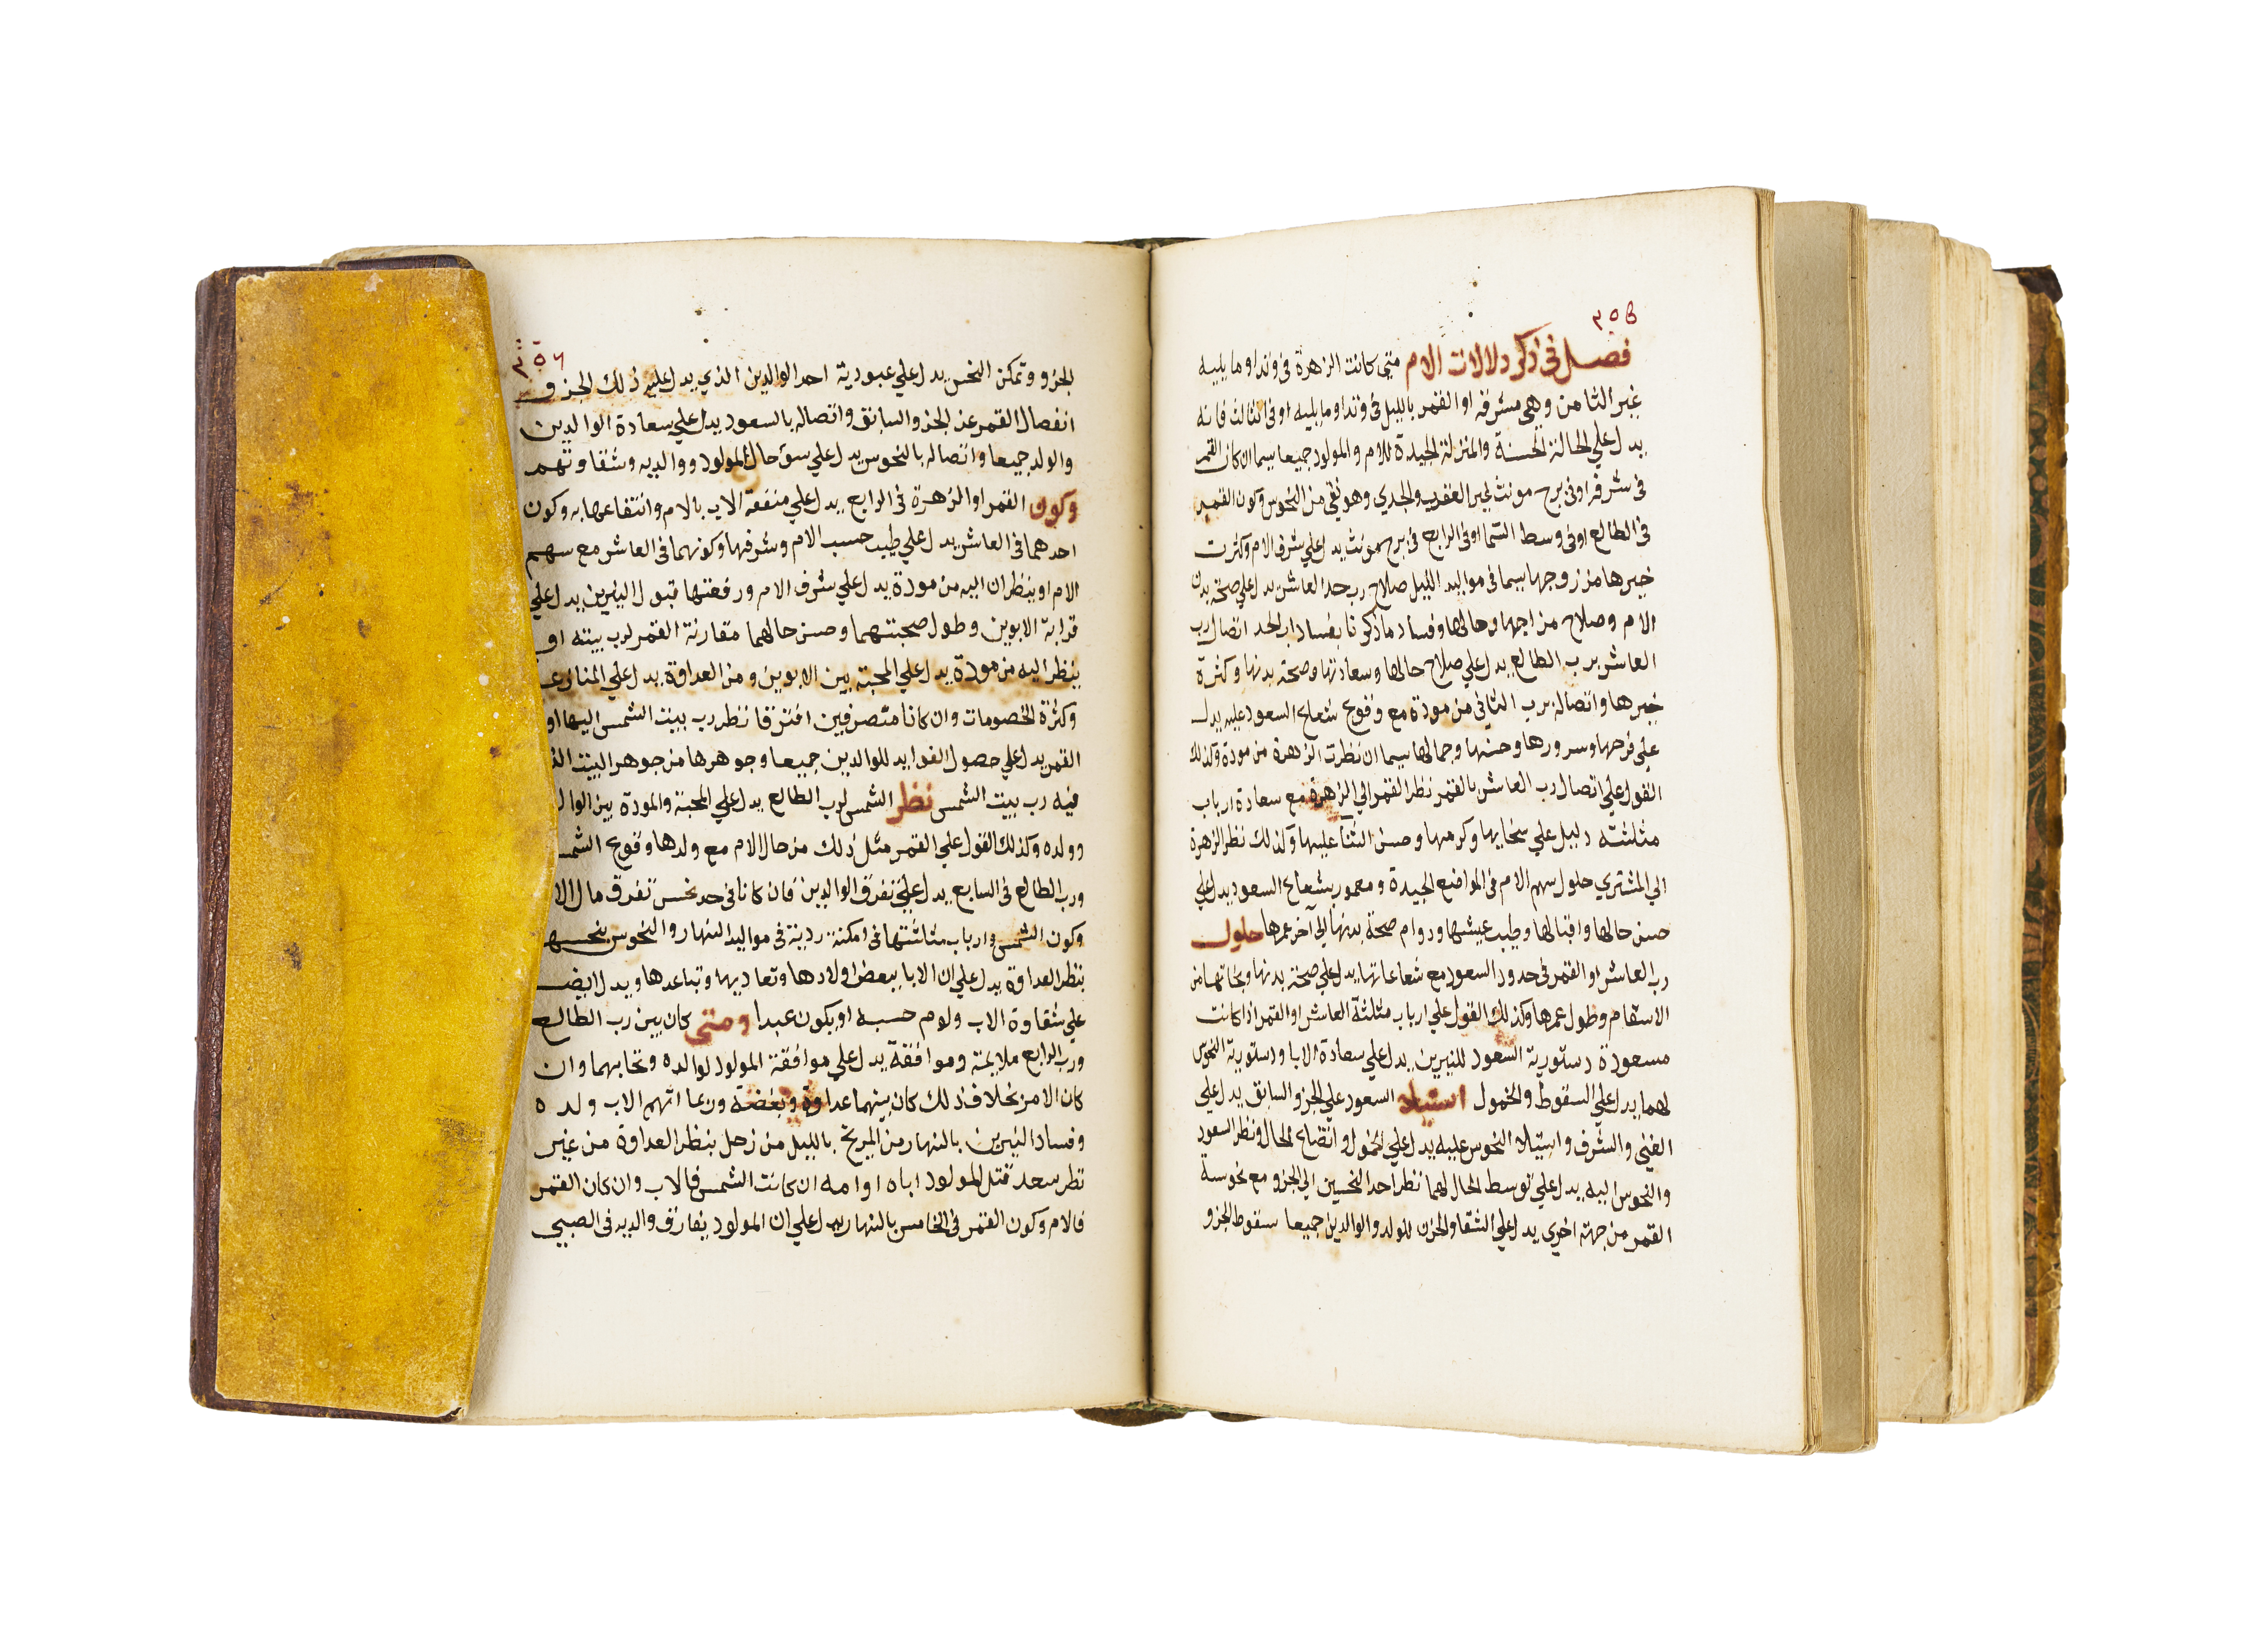 ٣٥٥
فصل في ذكر دلالات الام متي كانت الزهرة فى وتد او ما يليه
غير الثامن وهي مشرقه او القمر بالليل فى وتد او ما يليه او فى الثالث فانه
يدل علي الحالة الحسنة والمنزلة الجيدة للام والمولود جميعا سيما ان كان القمر
فى شرفه او فى برج مونث غير العقرب والجدي وهو نقي من النحوس وكون القمر
فى الطالع او فى وسط السما او فى الرابع فى برج مونث يدل علي شرف الام وكثرت
خيرها من زوجها سيما فى مواليد الليل صلاح رب حد العاشر يدل علي صحة بدن
الام وصلاح مزاجها وحالها وفساد ما ذكرنا بفساد رب الحد اتصال رب
العاشر برب الطالع يدل علي صلاح حالها وسعادتها وصحة بدنها وكثرة
خيرها واتصاله برب الثاني من مودة مع وقوع شعاع السعود عليه يدل
علي فرحها وسرورها وحسنها وجمالها سيما ان نظرت الزهرة من مودة وكذلك
القول علي اتصال رب العاشر بالقمر نظر القمر الي الزهرة مع سعادة ارباب
مثلثته دليل علي سخايها وكرمها وحسن الثنا عليها وكذلك نظر الزهرة
الي المشتري حلول سهم الام فى المواضع الجيدة ومعمور بشعاع السعود يدل علي
حسن حالها واقبالها وطيب عيشها ودوام صحة بدنها الي آخر عمرها حلول
رب العاشر او القمر فى حدود السعود مع شعاعاتها يدل علي صحة بدنها ونجاتها من
الاسقام وطول عمرها وكذلك القول علي ارباب مثلثة العاشر او القمر اذا كانت
مسعودة دستورية السعود للنيرين يدل علي سعادة الابا ودستورية النحوس
لهما يدل علي السقوط والخمول استيلاء السعود علي الجزو السابق يدل علي
الغني والشرف واستيلا النحوس عليه يدل علي الخمول واتضاع الحال ونظر السعود
والنحوس اليه يدل علي توسط الحال لهما نظر احد النحسين الي الجزو مع نحوسة
القمر من جهة اخري يدل علي الشقا والحزن للولد والوالدين جميعا سقوط الجزو
٣٥٦
الجزو وتمكن النحس يدل علي عبودية احد الوالدين الذي يدل عليه ذلك الجزو
انفصال القمر عن الجزو السابق واتصاله بالسعود يدل علي سعادة الوالدين
والولد جميعا واتصاله بالنحوس يدل علي سوء حال المولود ووالديه وشقاوتهم
وكون القمر او الزهرة فى الرابع يدل علي منفعة الاب بالام وانتفاعها به وكون
احدهما فى العاشر يدل علي طيب حسب الام وشرفها وكونهما فى العاشر مع سهم
الام او ينظران اليه من مودة يدل علي شرف الام ورفعتها قبول النيرين يدل علي
قرابة الابوين وطول صحبتهما وحسن حالهما مقارنة القمر لرب بيته او
ينظر اليه من مودة يدل علي المحبة بين الابوين ومن العداوة يدل علي المنازعـ
وكثرة الخصومات وان كانا متصرفين افترقا نظر رب بيت الشمس اليها او
القمر يدل علي حصول الفوايد للوالدين جميعا وجوهرها من جوهر البيت
فيه رب بيت الشمس نظر الشمس لرب الطالع يدل علي المحبة والمودة بين الوالـ
وولده وكذلك القول علي القمر مثل ذلك من حال الام مع ولدها وقوع الشمـ
ورب الطالع فى السابع يدل علي تفرق الوالدين فان كانا فى حد نحس تفرق مال الا
وكون الشمس وارباب مثلثتها فى امكنة ردية فى مواليد النهار والنحوس بنحسها
بنظر العداوة يدل علي ان الابا يبغض اولادها وتعاديها وتباعدها ويدل ايضـ
علي شقاوة الاب ولوم حسبه او يكون عبدا ومتي كان بين رب الطالع
ورب الرابع ملايمة وموافقة يدل علي موافقة المولود لوالده وتحابهما وان
كان الامر بخلاف ذلك كان بينهما عداوة وبغضة وربما اتهم الاب ولده
وفساد النيرين بالنهار من المريخ بالليل من زحل بنظر العداوة من غير
نظر سعد قتل المولود اباه او امه ان كانت الشمس فالاب وان كان القمر
فالام وكون القمر فى الخامس بالنهار يدل علي ان المولود يفارق والديه فى الصبي